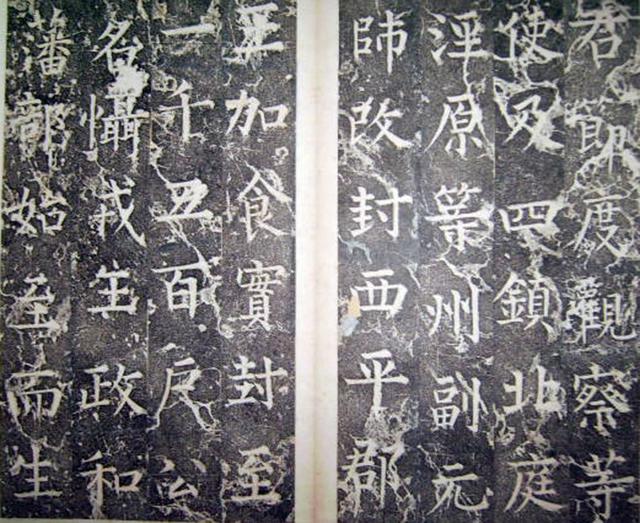 君節度觀察等
使及四鎮北庭
涇原等州副元
帥改封西平郡
王加食實封至
一千五百戶公
名懾戎生政和
藩部始至而生